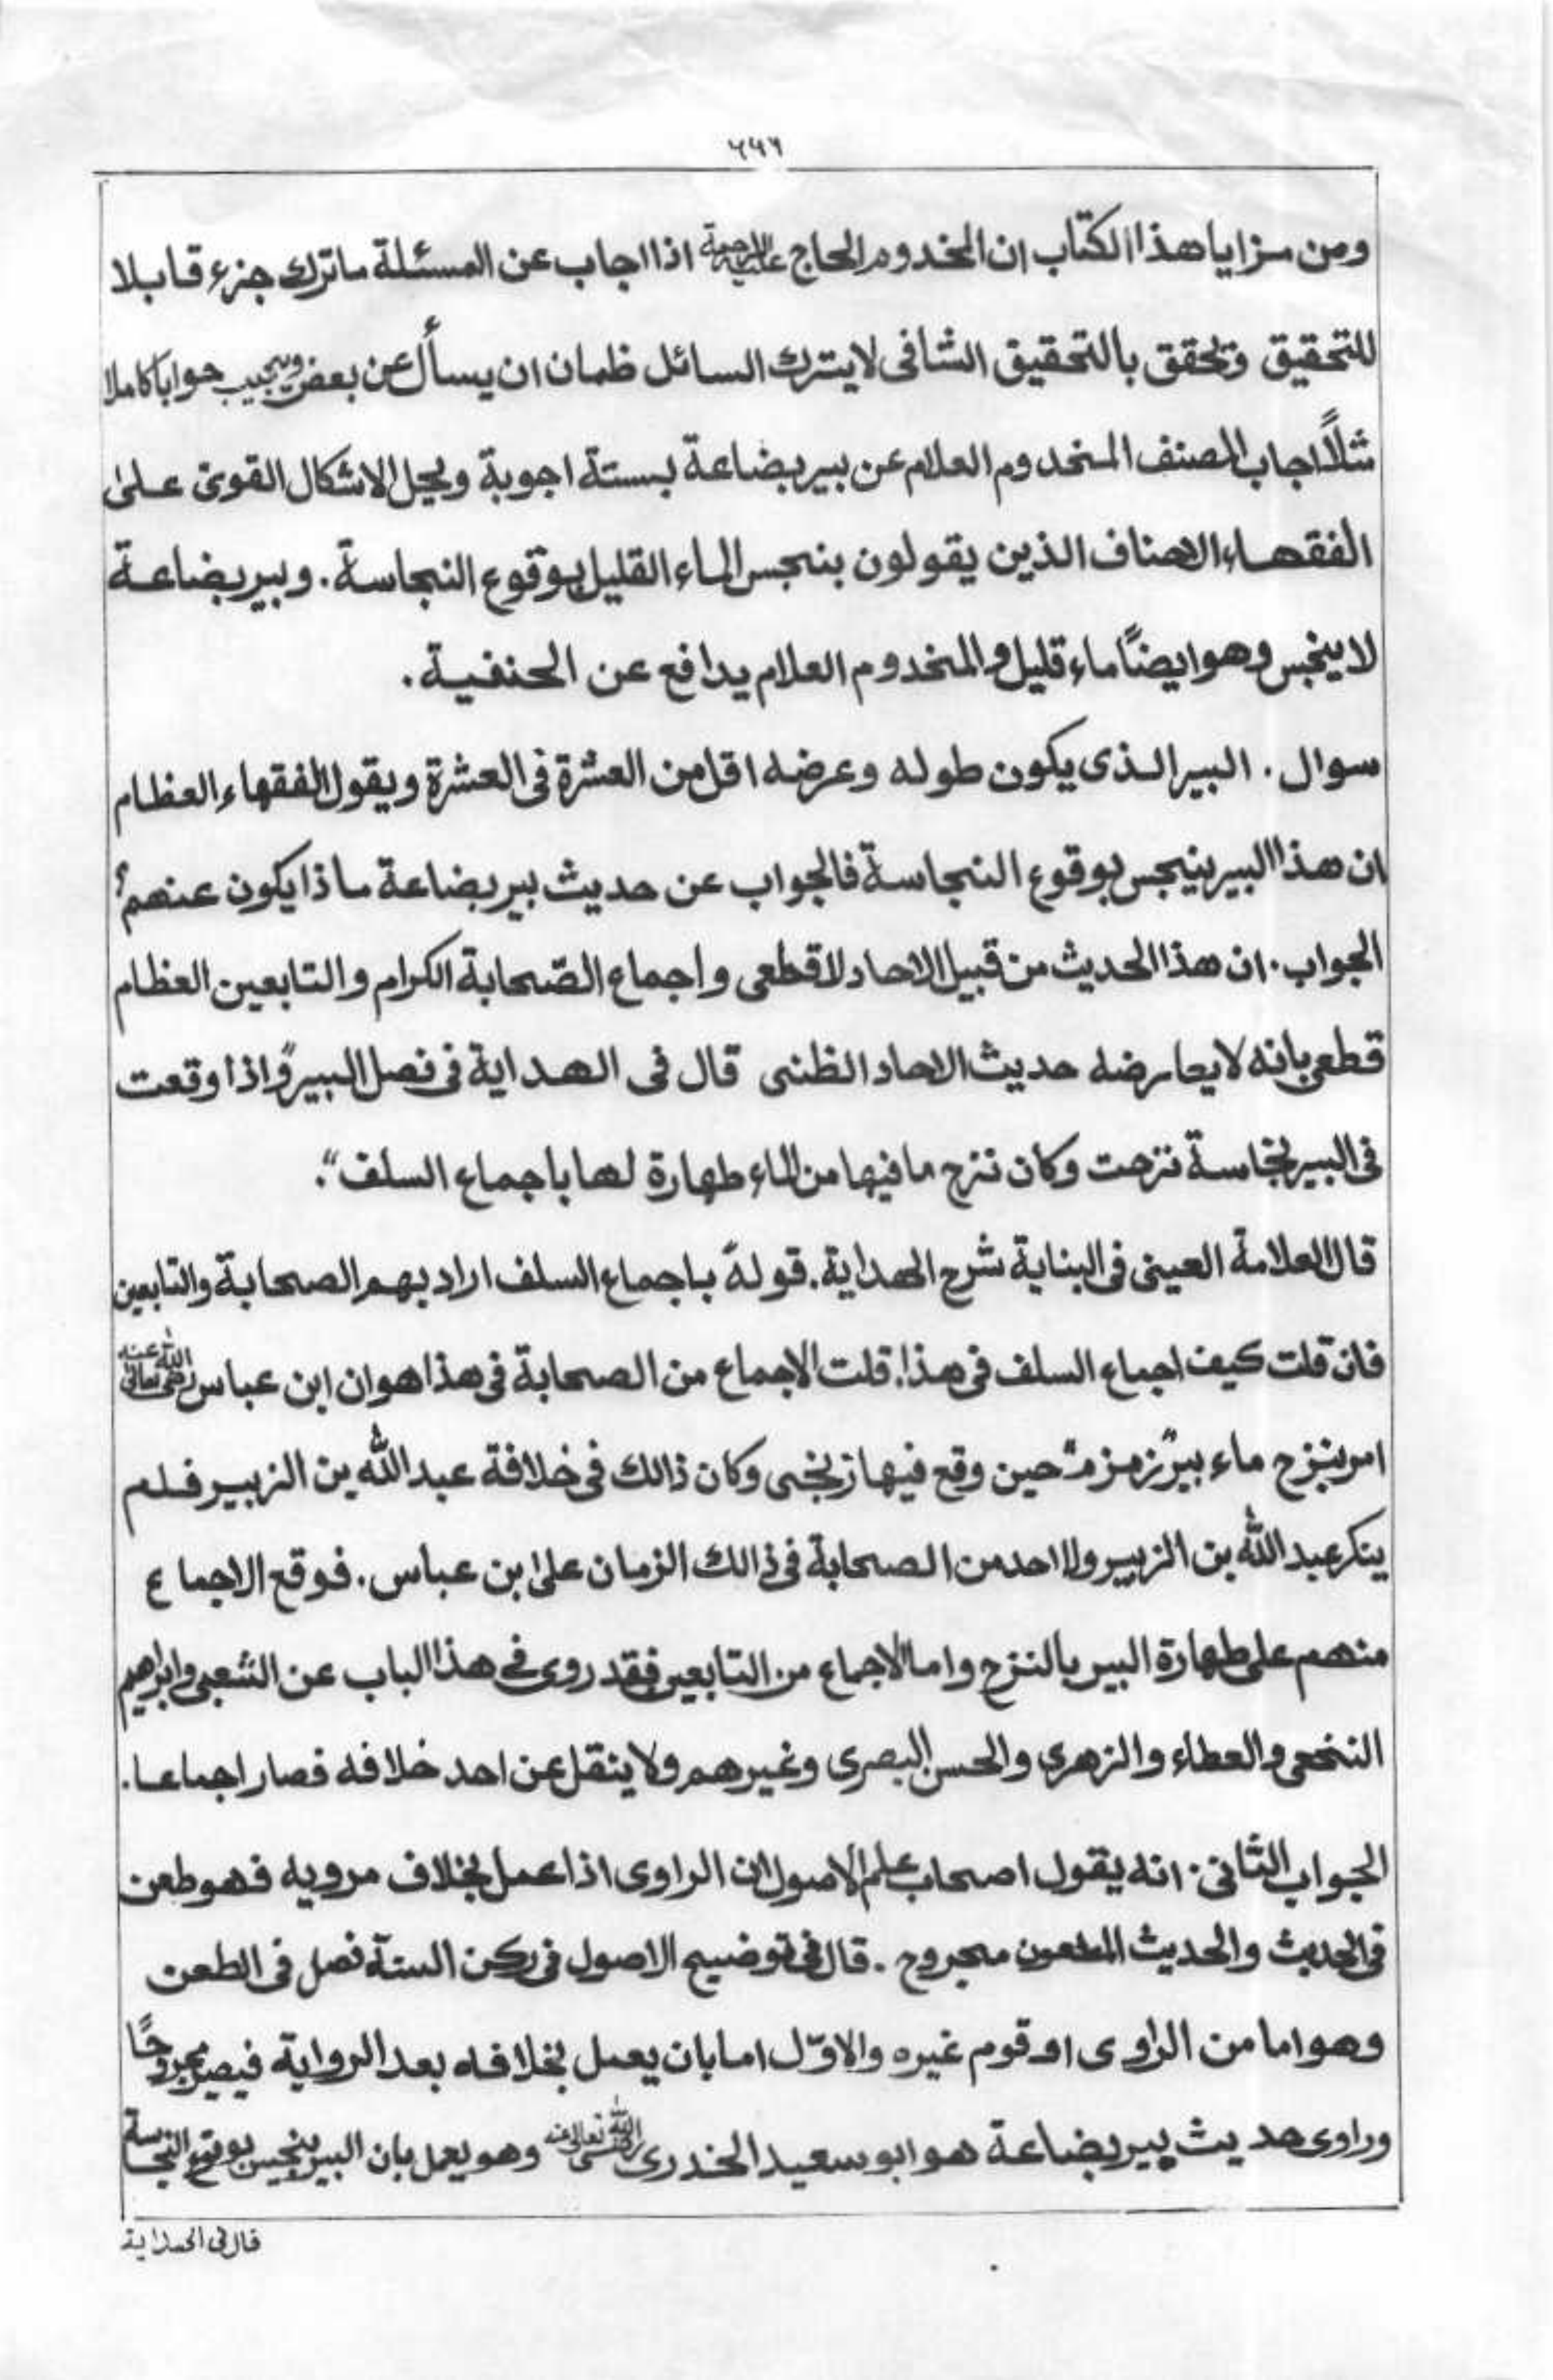 ومن مزايا هذا الكتاب ان المخدوم الحاج عليه الرحمة اذا اجاب عن المسئلة ماترك جزء قابلا
للتحقيق وتحقق بالتحقيق الشافى لايترك السائل ظمان ان يسأل عن بعض ويجيب جوابا كاملا
مثلاً اجاب المصنف المخدوم العلام عن بير بضاعة بستة اجوبة ويحل الاشكال القوى على
الفقهاء الاحناف الذين يقولون بنجس الماء القليل بوقوع النجاسة. وبير بضاعة
لاينجس وهو ايضاً ماء قليل والمخدوم العلام يدافع عن الحنفية.
سوال. البير الذى يكون طوله وعرضه اقل من العشرة فى العشرة ويقول الفقهاء العظام
ان هذا البير ينجس بوقوع النجاسة فالجواب عن حديث بير بضاعة ماذا يكون عنهم؟
الجواب. ان هذا الحديث من قبيل الاحاد لا قطعى واجماع الصّحابة الكرام والتابعين العظام
قطعى بانه لايعارضه حديث الاحاد الظنى قال فى الهداية فى فصل البير "واذا وقعت
فى البير نجاسة نزحت وكان نزح مافيها من الماء طهارة لها باجماع السلف".
قال العلامة العينى فى البناية شرح الهداية. قوله باجماع السلف اراد بهم الصحابة والتابعين
فان قلت كيف اجماع السلف فى هذا. قلت الاجماع من الصحابة فى هذا هو ان ابن عباس رضى الله تعالى عنه
امر بنزح ماء بير "زمزم" حين وقع فيها زنجى وكان ذالك فى خلافة عبد الله بن الزبير فلم
ينكر عبد الله بن الزبير ولا احد من الصحابة فى ذالك الزمان على ابن عباس. فوقع الاجماع
منهم على طهارة البير بالنزح واما الاجماع من التابعين فقد روى فى هذا الباب عن الشعبى وابراهيم
النخعى والعطاء والزهرى والحسن البصرى وغيرهم ولا ينقل عن احد خلافه فصار اجماعا.
الجواب الثانى. انه يقول اصحاب علم الاصول ان الراوى اذا عمل بخلاف مرويه فهو طعن
فى الحديث والحديث المطعون مجروح. قال فى توضيح الاصول فى ركن السنة فصل فى الطعن
وهو اما من الراوى او قوم غيره والاوّل اما بان يعمل بخلافه بعد الرواية فيصير مجروحًا
وراوى حديث بير بضاعة هو ابو سعيد الخدرى رضى الله تعالى عنه وهو يعمل بان البير ينجس بوقوع النجاسة
قال فى الهداية